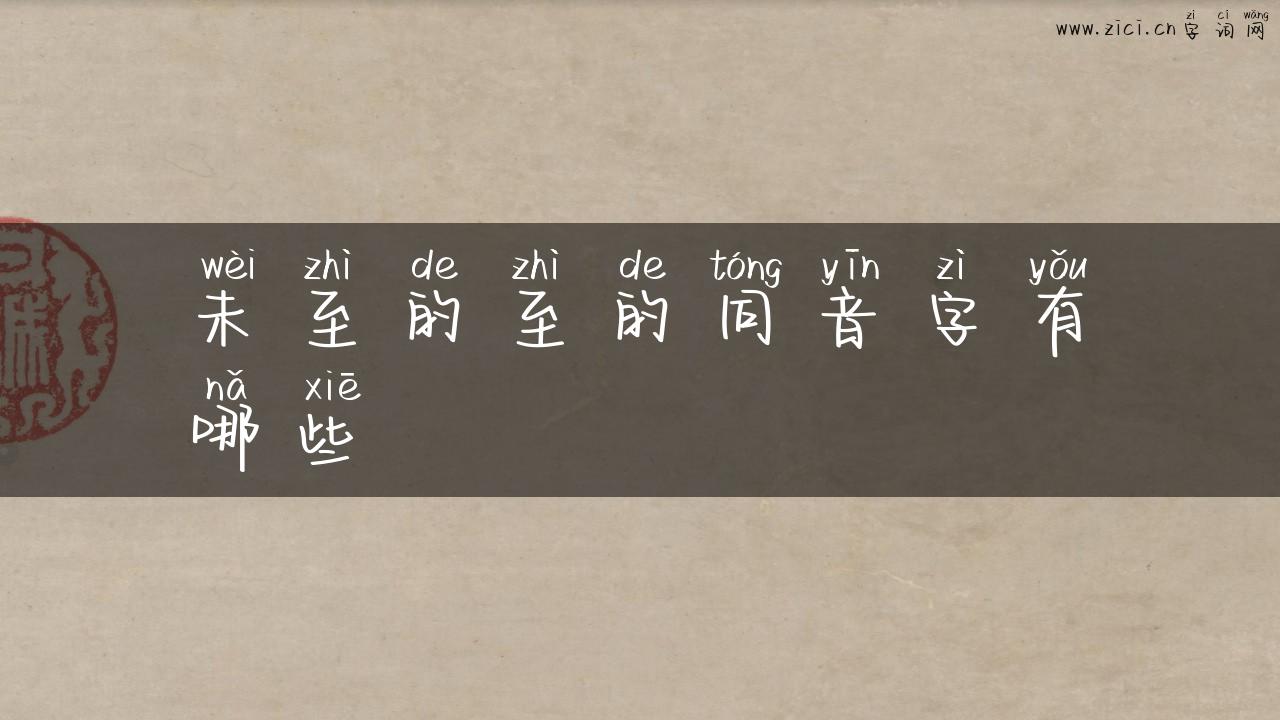 zì cí wǎng
www.zici.cn 字词网
wèi zhì de zhì de tóng yīn zì yǒu
未至的至的同音字有
nǎ xiē
哪些